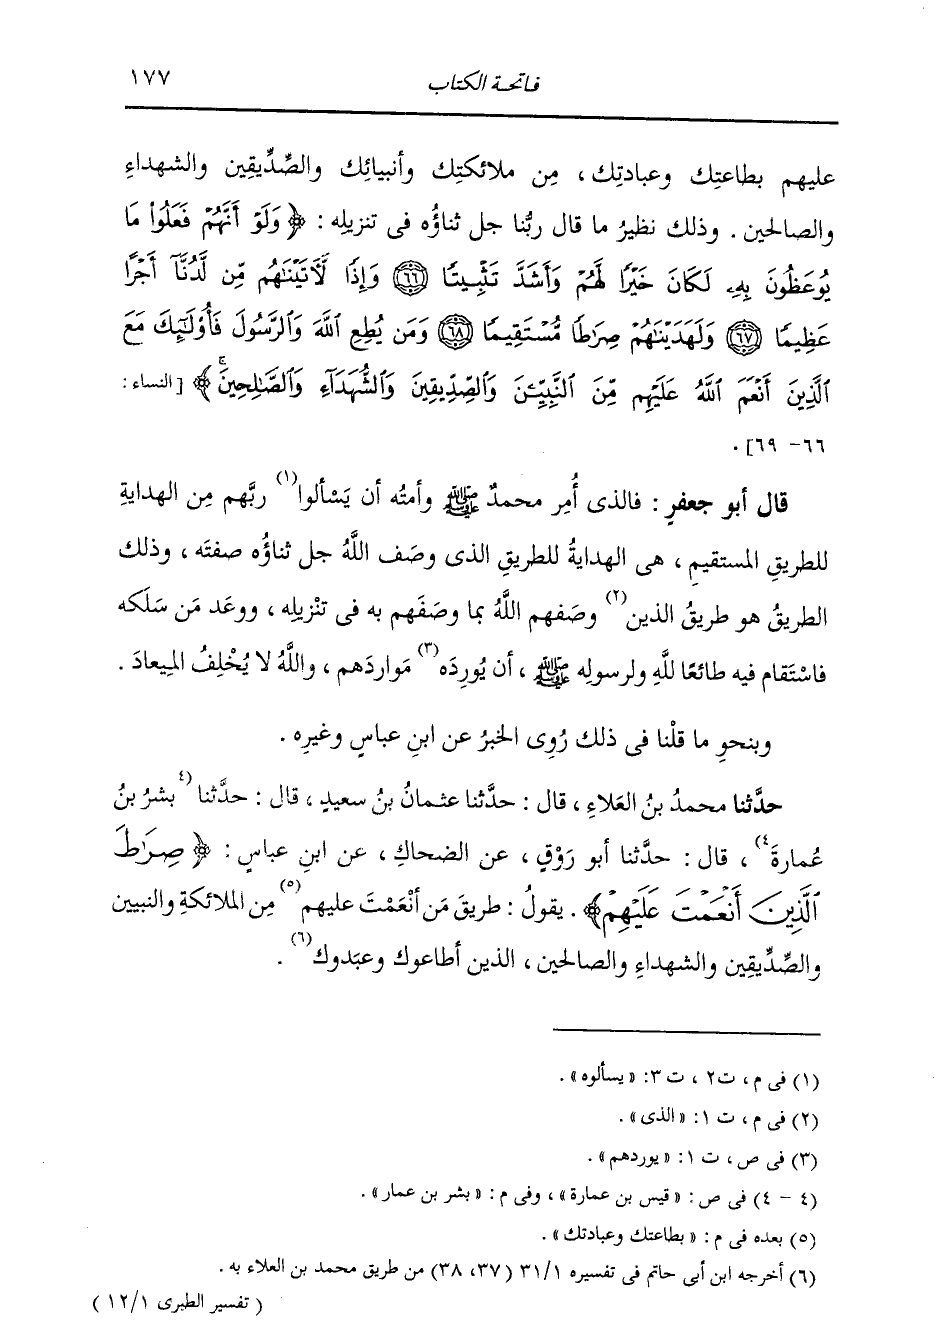 فاتحة الكتاب ١٧٧
عليهم بطاعتِك وعبادتِك ، مِن ملائكتِك وأنبيائِك والصِّدِّيقِين والشهداءِ
والصالحين . وذلك نظيرُ ما قال ربُّنا جل ثناؤُه فى تنزيلِه : ﴿ وَلَوْ أَنَّهُمْ فَعَلُوا۟ مَا
يُوعَظُونَ بِهِۦ لَكَانَ خَيْرًا لَّهُمْ وَأَشَدَّ تَثْبِيتًا ﴿٦٦﴾ وَإِذًا لَّـَٔاتَيْنَـٰهُم مِّن لَّدُنَّآ أَجْرًا
عَظِيمًا ﴿٦٧﴾ وَلَهَدَيْنَـٰهُمْ صِرَٰطًا مُّسْتَقِيمًا ﴿٦٨﴾ وَمَن يُطِعِ ٱللَّهَ وَٱلرَّسُولَ فَأُو۟لَـٰٓئِكَ مَعَ
ٱلَّذِينَ أَنْعَمَ ٱللَّهُ عَلَيْهِم مِّنَ ٱلنَّبِيِّـۧنَ وَٱلصِّدِّيقِينَ وَٱلشُّهَدَآءِ وَٱلصَّـٰلِحِينَۚ ﴾ [ النساء :
٦٦- ٦٩] .
قال أبو جعفرٍ : فالذى أُمِر محمدٌ ﷺ وأمتُه أن يَسْألوا(١) ربَّهم مِن الهدايةِ
للطريقِ المستقيمِ ، هى الهدايةُ للطريقِ الذى وصَف اللَّهُ جل ثناؤُه صفتَه ، وذلك
الطريقُ هو طريقُ الذين(٢) وصَفهم اللَّهُ بما وصَفَهم به فى تنْزيلِه ، ووعَد مَن سَلَكه
فاسْتَقام فيه طائعًا للَّهِ ولرسولِه ﷺ ، أن يُورِدَه(٣) مَواردَهم ، واللَّهُ لا يُخْلِفُ المِيعادَ .
وبنحوِ ما قلْنا فى ذلك رُوِى الخبرُ عن ابنِ عباسٍ وغيرِه .
حدَّثنا محمدُ بنُ العَلاءِ ، قال : حدَّثنا عثمانُ بنُ سعيدٍ ، قال : حدَّثنا (٤بشرُ بنُ
عُمارةَ٤) ، قال : حدَّثنا أبو رَوْقٍ ، عن الضحاكِ ، عن ابنِ عباسٍ : ﴿ صِرَٰطَ
ٱلَّذِينَ أَنْعَمْتَ عَلَيْهِمْ ﴾ . يقولُ : طريقَ مَن أنْعَمْتَ عليهم(٥) مِن الملائكةِ والنبيين
والصِّدِّيقِين والشهداءِ والصالحين ، الذين أطاعوك وعبَدوك(٦) .
(١) فى م ، ت٢ ، ت ٣: « يسألوه » .
(٢) فى م ، ت ١: « الذى » .
(٣) فى ص ، ت ١: « يوردهم » .
(٤ - ٤) فى ص : « قيس بن عمارة » ، وفى م : « بشر بن عمار » .
(٥) بعده فى م : « بطاعتك وعبادتك » .
(٦) أخرجه ابن أبى حاتم فى تفسيره ٣١/١ (٣٧، ٣٨) من طريق محمد بن العلاء به .
( تفسير الطبرى ١٢/١ )